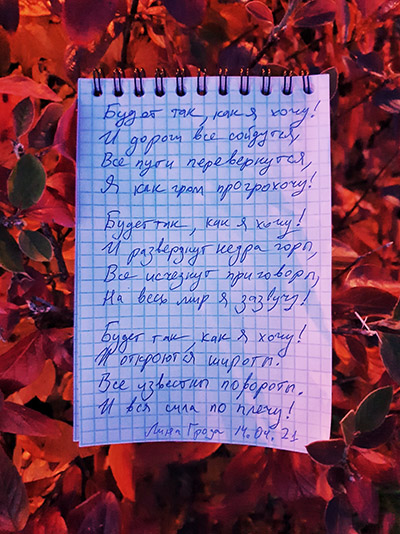 Будет так, как я хочу!
И дороги все сойдутся,
Все пути перевернутся,
Я как гром прогрохочу!
Будет так, как я хочу!
И развергнут недра горы,
Все исчезнут приговоры,
На весь мир я зазвучу!
Будет так, как я хочу!
И откроются широты.
Все известны повороты,
И вся сила по плечу!
Лина Гроза 14.04.21